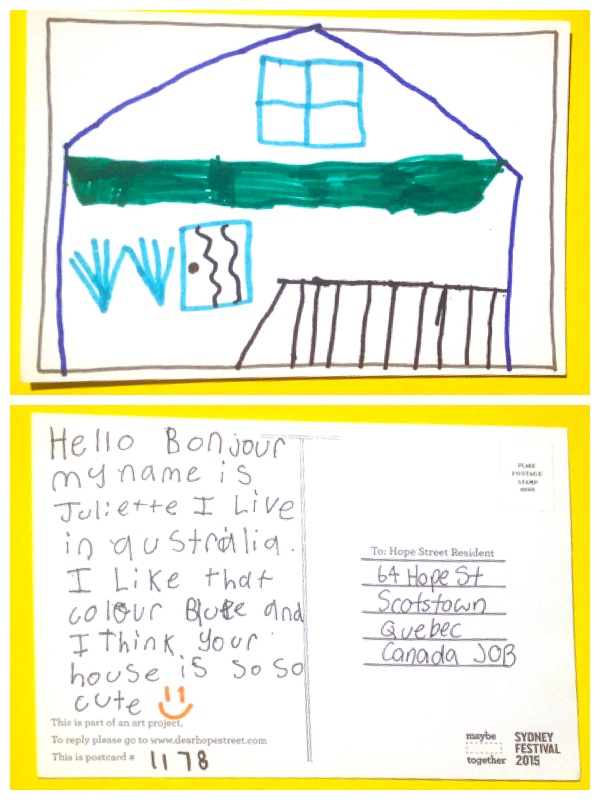 Hello Bonjour
my name is
Juliette I Live
in australia.
I Like that
colour Blue and
I think your
house is so so
cute
This is part of an art project.
To reply please go to www.dearhopestreet.com
This is postcard # 1178
PLACE
POSTAGE
STAMP
HERE
To: Hope Street Resident
64 Hope St
Scotstown
Quebec
Canada JOB
maybe
together
SYDNEY
FESTIVAL
2015